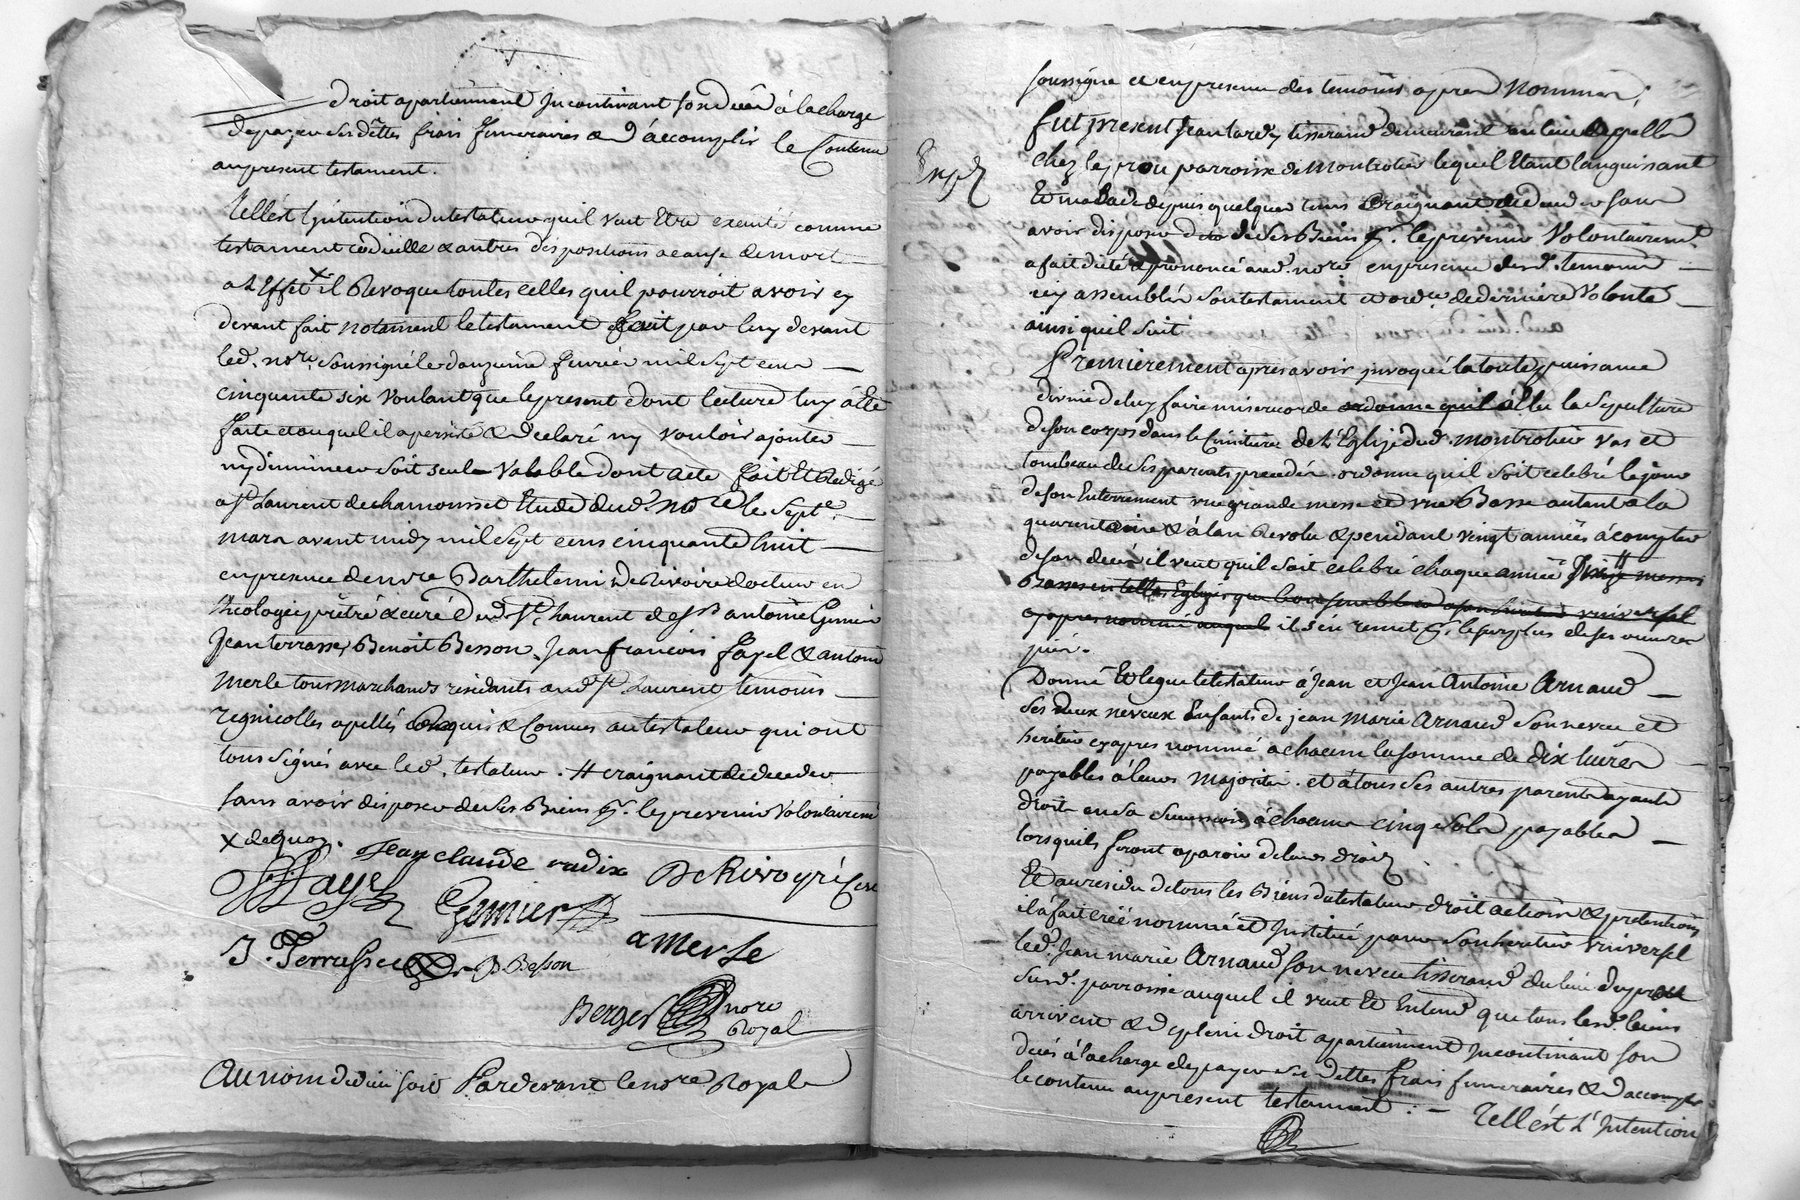 droit apartiennent Incontinant son decéz à la charge
de payer ses dêttes frais funeraires & d'accomplir le Contenu
au present testament.
Tell est L'intention du testateur qu'il veut Etre executé comme
testament codicille & autres dispositions a cause de mort
a L'Effet X il Revoque toutes celles qu'il pourroit avoir cy
devant fait notament le testament fait par luy devant
led. nore. soussigné le douzieme fevrier mil sept cens
cinquante six voulant que le present dont lecture luy a été
faite et auquel il a persisté & declaré ny vouloir ajouter
ny diminuer soit seul valable dont acte fait Et Redigé
a st. Laurent de chamousset Etude dud. nore le sept
mars avant midy mil sept cens cinquante huit
en presence de mre Barthelemi DeRivoire docteur en
theologie prêtre & curé dud. st. Laurent de sr antoine Gimier
Jean terrasse, Benoit Besson, Jean francois fayel & antoine
merle tous marchands residants aud. st. Laurent temoins
regnicolles apellés Requis & Connus au testateur qui ont
tous signés avec led. testateur. # craignant de deceder
sans avoir disposer de ses Biens pr. le prevenir Volontairemt
X de quoy.
Jean claude radix DeRivoyre Curé
Fayel Gimier
J. Terrasse B Besson a Merle
Berger nore
Royal
Au nom de dieu soit Pardevant le nore Royal
soussigné et en presence des temoins apres Nommés,
Exp.
fut present Jean tardy tisserand demeurant au lieu apellé
chez le prou parroisse de Montrotier lequel Etant languissant
Et malade depuis quelques tems Craignant de deceder sans
avoir disposer de ses Biens pr. le prevenir Volontairemt.
a fait dicté & prononcé aud. nore en presence desd. temoins
icy assemblés son testament et ordce. de derniere Volonté
ainsi quil suit
Premierement apres avoir jnvoqué la toute puissance
divine de luy faire misericorde ordonne qu'il Elu la sepulture
de son corps dans le Cimitiere de L'Eglise dud. montrotier vas et
tombeau de ses parents precedés ordonne qu'il soit celebré le jour
de son Enterrement une grande messe et une Basse autant a la
quarentaine & à l'an Revolu & pendant vingt années à compter
de son decéz il veut qu'il soit celebré chaque année # messes
Basses en telle Eglise que bon semblera a son heritier universel
cy apres nommé auquel il s'en remet pr. le surplus de ses œuvres
pies.
Donne Et legue le testateur à Jean et Jean Antoine Arnaud
ses deux neveux Enfants de jean Marie Arnaud son neveu et
heritier cy apres nommé a chacun la somme de dix livres
payables à leurs majorités. et à tous ses autres parents ayants
droit en sa succession à chacun cinq sols payables
lorsquils feront aparoir de leurs droits
Et au residu de tous les Biens du testateur droit actions & pretentions
il a fait créé nommé et Institué pour son heritier universel
led. Jean marie Arnaud son neveu tisserand du lieu du prou
susd. parroisse auquel il veut Et Entend que tous lesd. biens
arrivent & de plein droit apartiennent Incontinant son
decés à la charge de payer ses dettes frais funeraires & d'accomplir
le contenu au present testament :
Tell est L'Intention